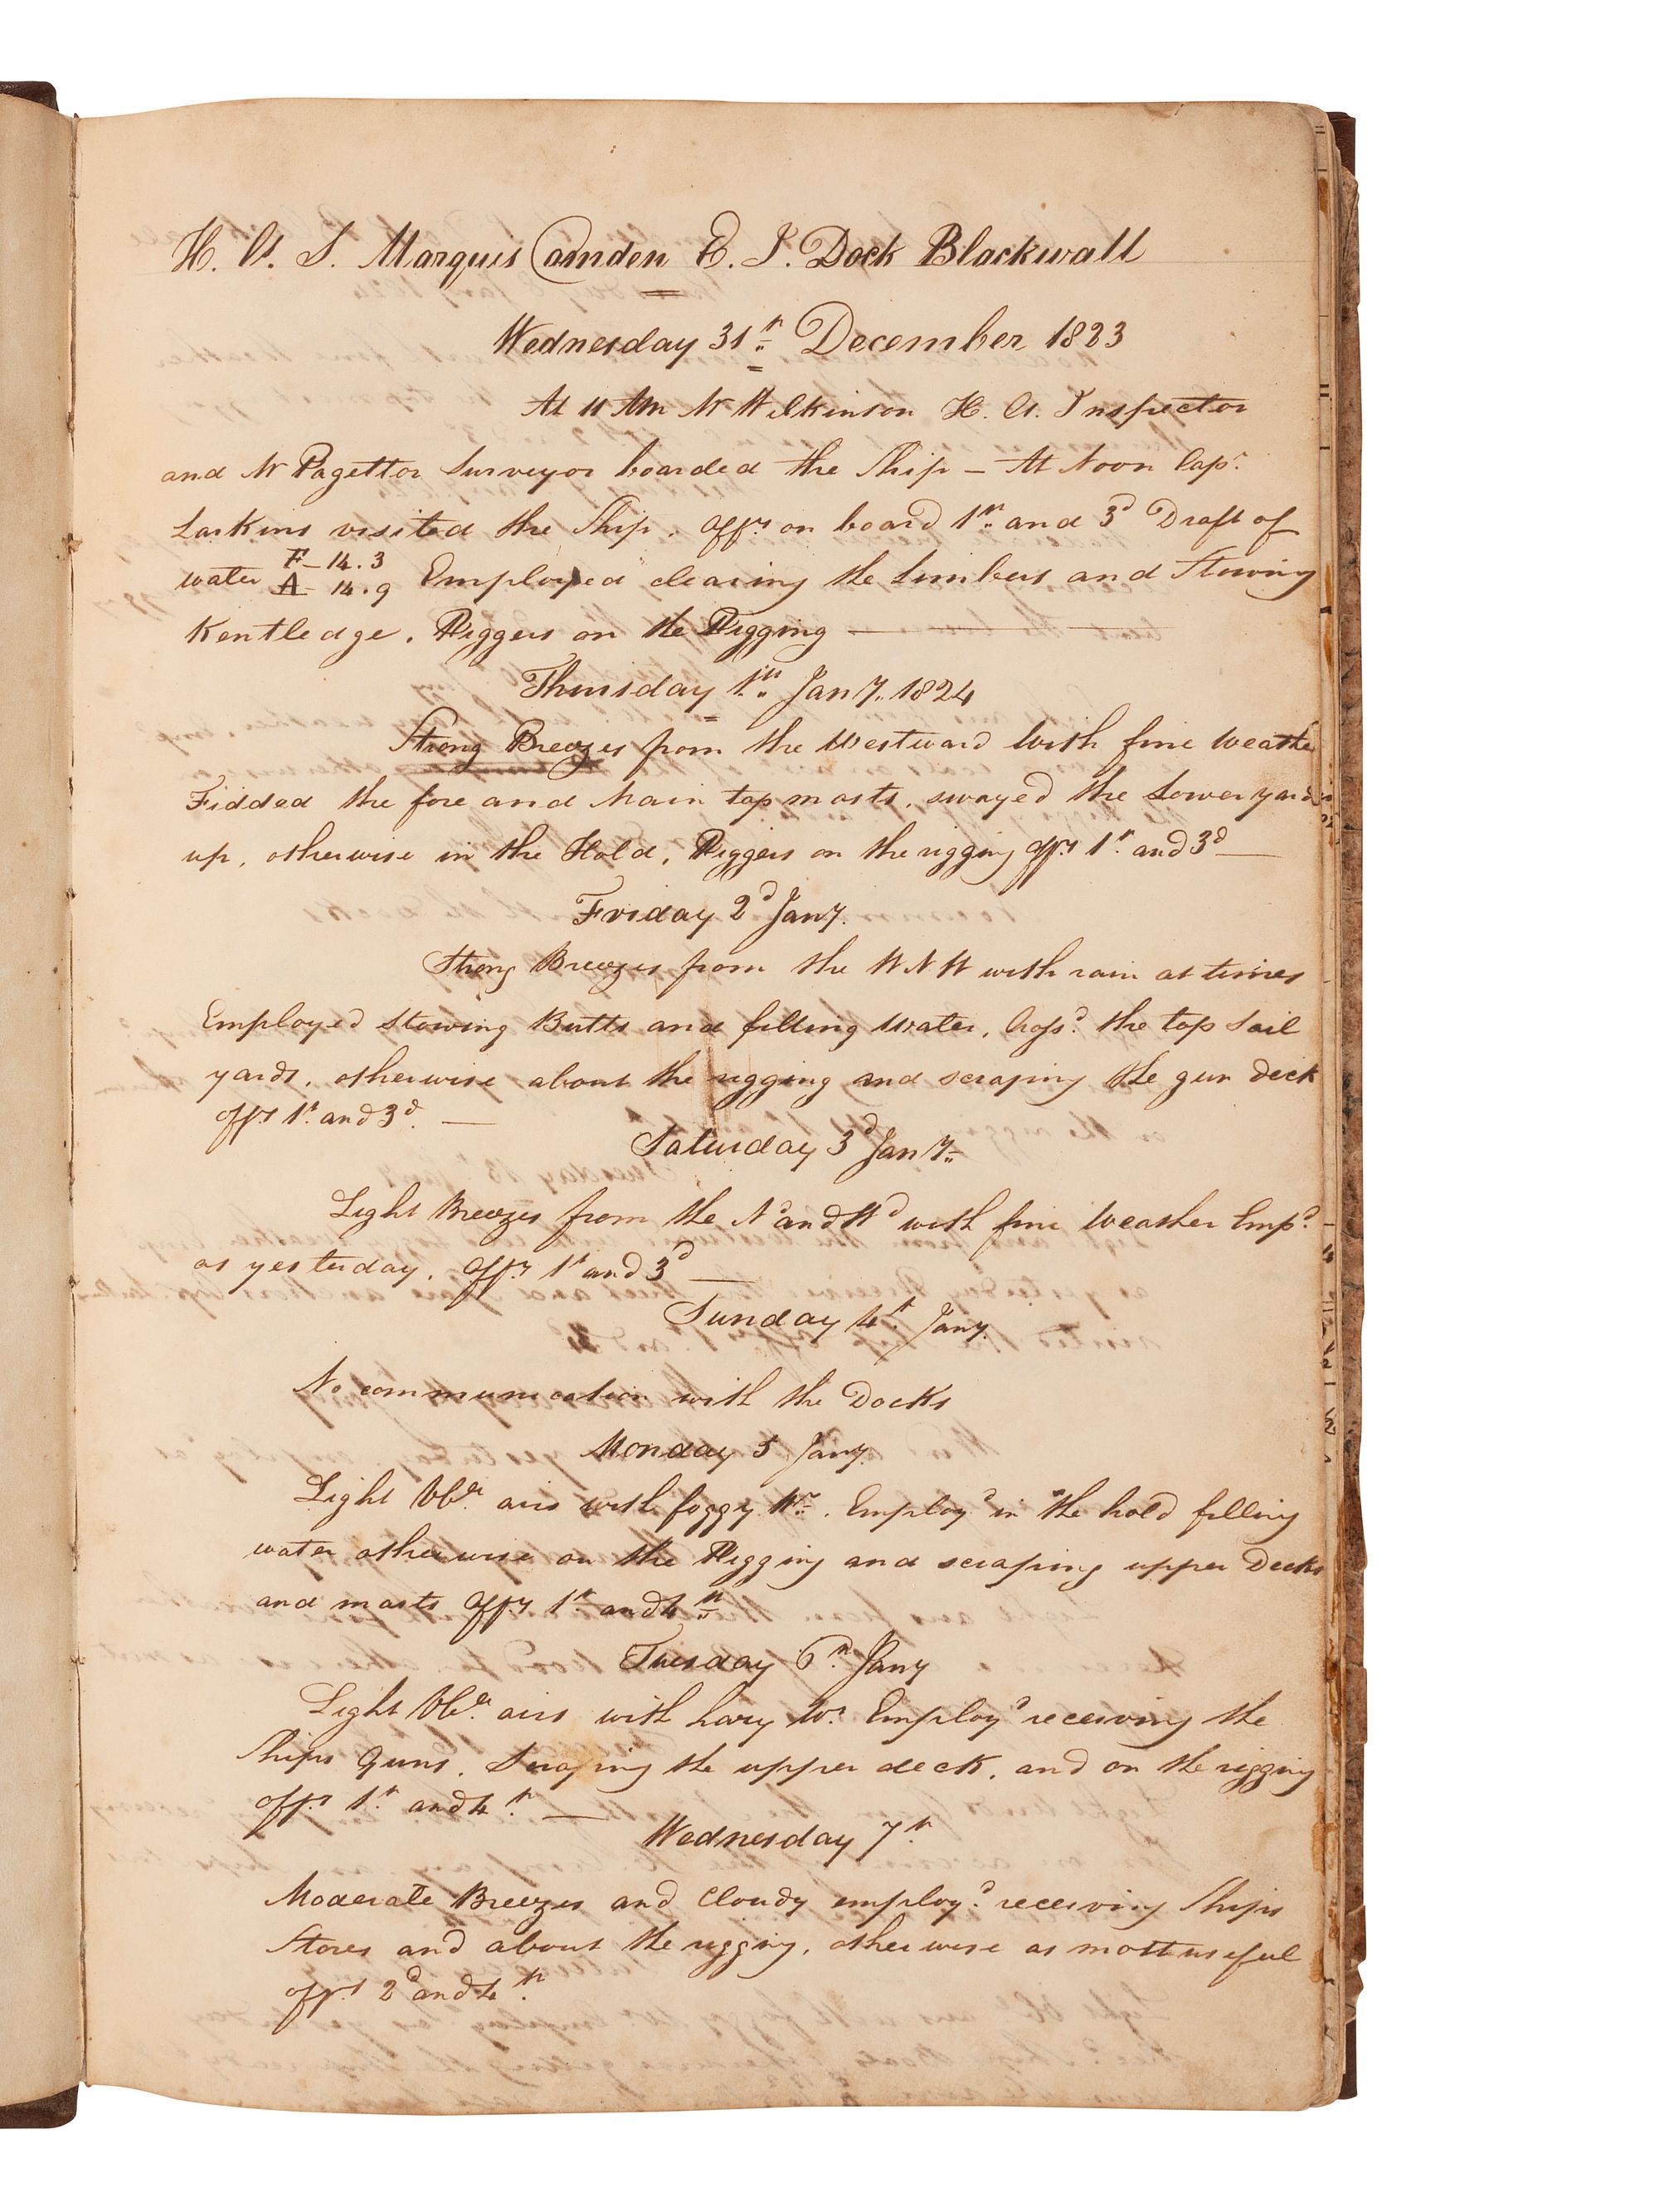 H. C. S. Marquis Camden E. I. Dock Blackwall
Wednesday 31st December 1823
At 11 Am Mr Wilkinson H. C. Inspector
and Mr Pagettor Surveyor boarded the Ship – At Noon Capt.
Larkins visited the Ship. Offrs on board 1st and 3d Draft of
water F – 14.3 A – 14.9 Employed clearing the limbers and Stowing
Kentledge. Riggers on the Rigging
Thursday 1st Jany. 1824
Strong Breezes from the Westward with fine weather
Fidded the fore and Main topmasts, swayed the Lower yards
up, otherwise in the Hold, Riggers on the rigging offrs 1st and 3d
Friday 2d Jany.
Strong Breezes from the W N W with rain at times
Employed stowing Butts and filling water, Cross'd the top Sail
yards, otherwise about the rigging and scraping the gun deck
offrs 1st and 3d.
Saturday 3d Jany.
Light Breezes from the Nd and Wd with fine weather Empd
as yesterday. Offrs 1st and 3d
Sunday 4th Jany.
No communication with the Docks
Monday 5 Jany.
Light Vble airs with foggy Wr. Employd in the hold filling
water otherwise on the Rigging and scraping upper Decks
and masts Offrs 1st and 4th
Tuesday 6th Jany
Light Vble airs with hazy Wr Employd receiving the
Ships Guns. Scraping the upper deck, and on the rigging
offrs 1st and 4th
Wednesday 7th
Moderate Breezes and Cloudy employd receiving Ships
Stores and about the rigging, otherwise as most useful
offrs 2d and 4th